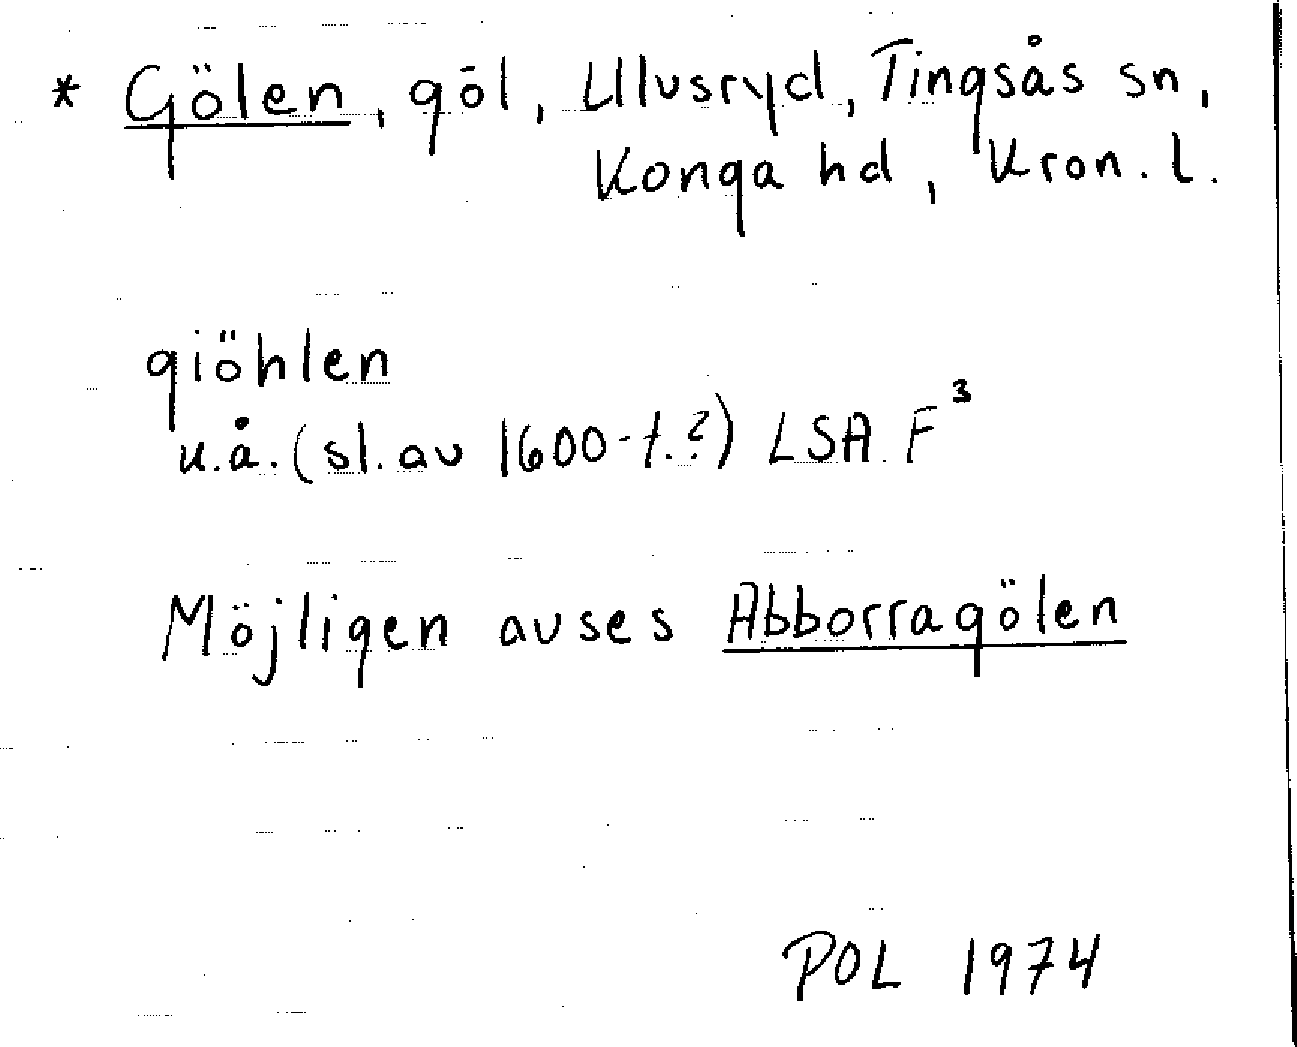 * Gölen, göl, Ulvsryd, Tingsås sn,
Konga hd, Kron. l.
giöhlen
u.å. (sl. av 1600-t.?) LSA F³
Möjligen avses Abborragölen
POL 1974